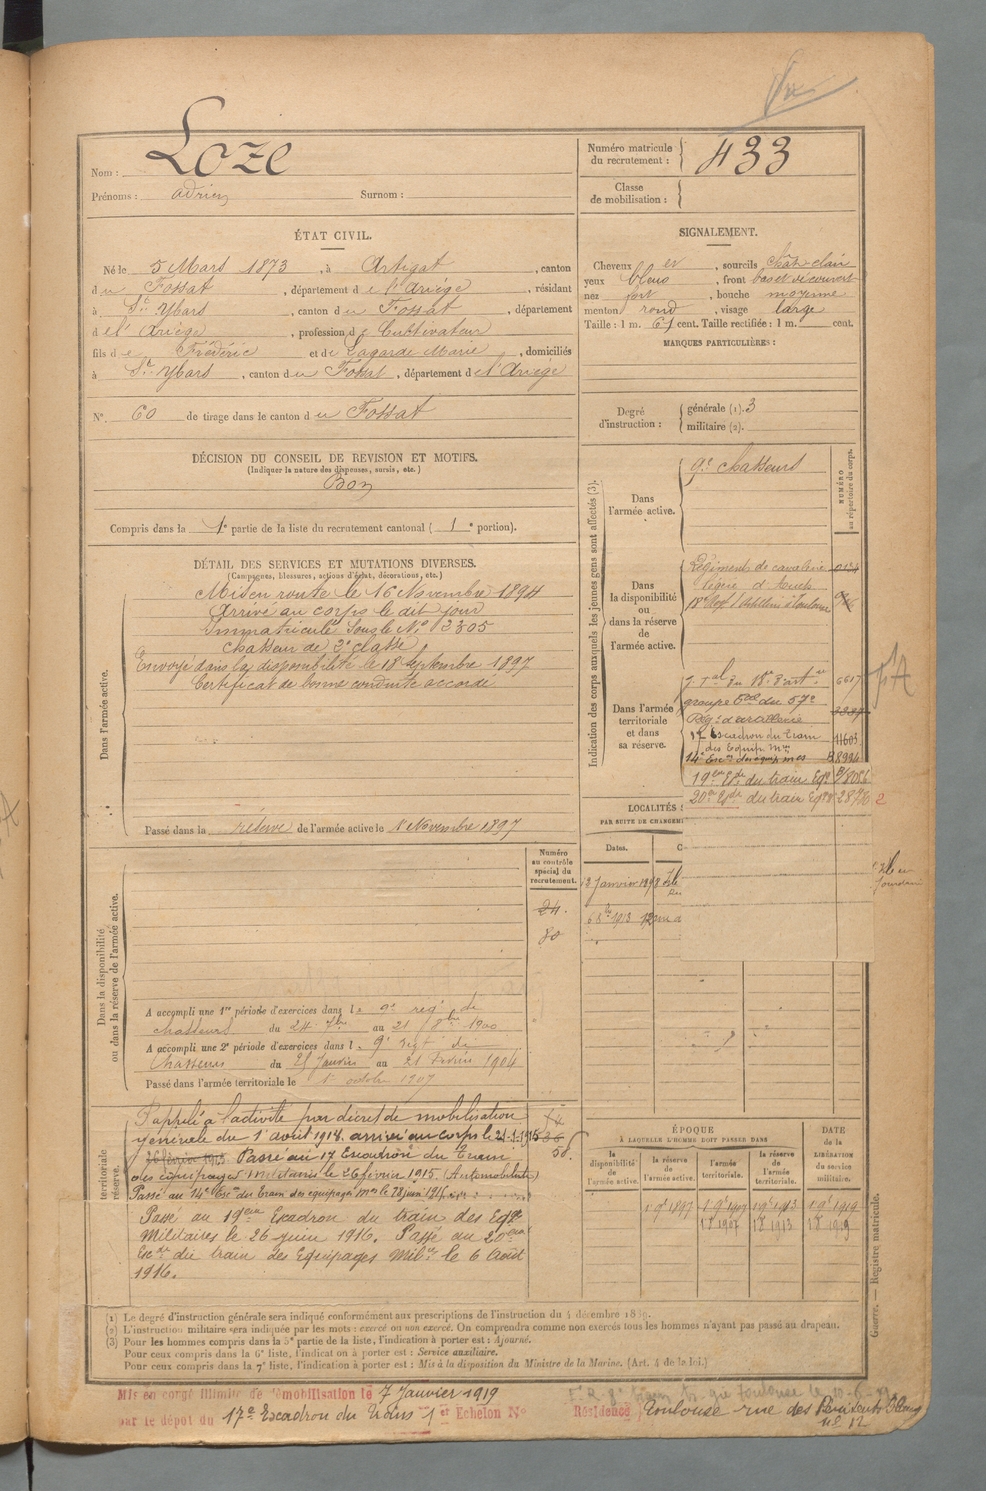 Nom : Loze
Prénoms : Adrien Surnom :
Numéro matricule du recrutement : 433
Classe de mobilisation :
ÉTAT CIVIL.
Né le 5 Mars 1873, à Artigat, canton
du Fossat, département de l'Ariège, résidant
à Ste Ybars, canton du Fossat, département
de l'Ariège, profession de Cultivateur
fils de Frédéric et de Lagarde Marie, domiciliés
à St Ybars, canton du Fossat, département de l'Ariège
N° 60 de tirage dans le canton du Fossat
SIGNALEMENT.
Cheveux et, sourcils chât clair
yeux bleus, front bas et découvert
nez fort, bouche moyenne
menton rond, visage large
Taille : 1 m. 61 cent. Taille rectifiée : 1 m. cent.
MARQUES PARTICULIÈRES :
Degré d'instruction : générale (1). 3
militaire (2).
DÉCISION DU CONSEIL DE REVISION ET MOTIFS.
(Indiquer la nature des dispenses, sursis, etc.)
Bon
Compris dans la 1e partie de la liste du recrutement cantonal ( 1e portion).
DÉTAIL DES SERVICES ET MUTATIONS DIVERSES.
(Campagnes, blessures, actions d'éclat, décorations, etc.)
Dans l'armée active.
Mis en route le 16 Novembre 1894
Arrivé au corps le dit jour
Immatriculé sous le N° 3305
chasseur de 2e classe
Envoyé dans la disponibilité le 18 Septembre 1897
Certificat de bonne conduite accordé
Passé dans la réserve de l'armée active le 1er Novembre 1897
Indication des corps auxquels les jeunes gens sont affectés (3).
NUMÉRO au répertoire du corps.
Dans l'armée active.
9e chasseurs
Dans la disponibilité ou dans la réserve de l'armée active.
Régiment de cavalerie
légère d'Auch
Dans l'armée territoriale et dans sa réserve.
6617
groupe Tal du 57e
Régt d'artillerie
17e Escadron du Train
des Equip. Mres
11603
14e Escon des équip. mres 8994
19eme Esde du train Eqp.
20eme Esde du train Eqp.
LOCALITÉS
PAR SUITE DE CHANGEM
Dates.
13 Janvier 1898
Numéro au contrôle spécial du recrutement.
24.
80
Dans la disponibilité ou dans la réserve de l'armée active.
A accompli une 1re période d'exercices dans le 9e régt de
chasseurs du 24 7bre au 21 8bre 1900
A accompli une 2e période d'exercices dans l. 9e régt de
Chasseurs du 25 Janvier au 21 Février 1904
Passé dans l'armée territoriale le 1er octobre 1907
territoriale
réserve.
Rappelé à l'activité par décret de mobilisation
générale du 1er août 1914. arrivé au corps le 21-1-1915
26 février 1915 Passé au 17 Escadron du Train
des équipages militaires le 26 février 1915 (Automobiliste)
Passé au 14e Escon du Train des équipages mres le 28 juin 1915
Passé au 19eme Escadron du train des Eqpes
Militaires le 26 juin 1916. Passé au 20eme
Escon du train des Equipages Milres le 6 Août
1916.
ÉPOQUE
À LAQUELLE L'HOMME DOIT PASSER DANS
la disponibilité de l'armée active.
la réserve de l'armée active.
l'armée territoriale.
la réserve de l'armée territoriale.
DATE de la LIBÉRATION du service militaire.
1 9bre 1897 1 9bre 1907 1 9bre 1913 1 9bre 1919
(1) Le degré d'instruction générale sera indiqué conformément aux prescriptions de l'instruction du 4 décembre 1889.
(2) L'instruction militaire sera indiquée par les mots : exercé ou non exercé. On comprendra comme non exercés tous les hommes n'ayant pas passé au drapeau.
(3) Pour les hommes compris dans la 5e partie de la liste, l'indication à porter est : Ajourné.
Pour ceux compris dans la 6e liste, l'indication à porter est : Service auxiliaire.
Pour ceux compris dans la 7e liste, l'indication à porter est : Mis à la disposition du Ministre de la Marine. (Art. 4 de la loi.)
Guerre. — Registre matricule.
Mis en congé illimité de démobilisation le 7 Janvier 1919
par le dépôt du 17e Escadron du Train 1er Echelon N°
Résidence Toulouse rue des
n° 12